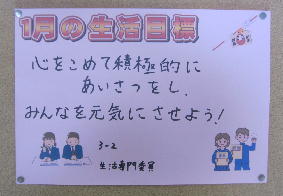 1月の生活目標
心をこめて積極的に
あいさつをし、
みんなを元気にさせよう!
3-2
生活専門委員